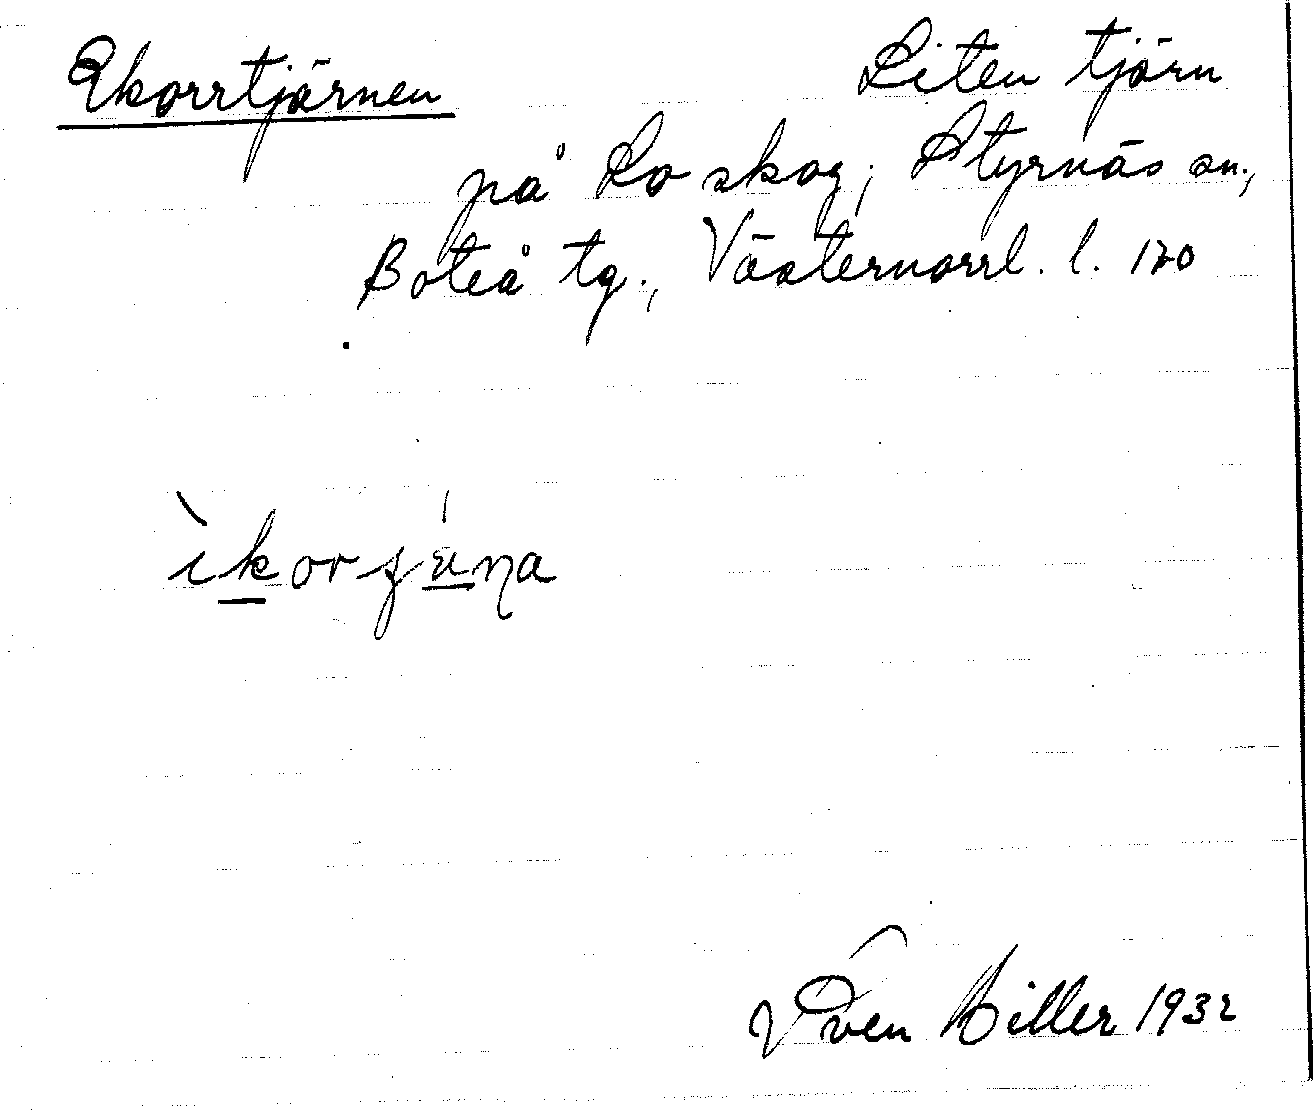 Ekorrtjärnen
Liten tjärn
på Lo skog, Styrnäs sn.,
Boteå tg., Västernorrl. l. 120
Sven Hiller 1932